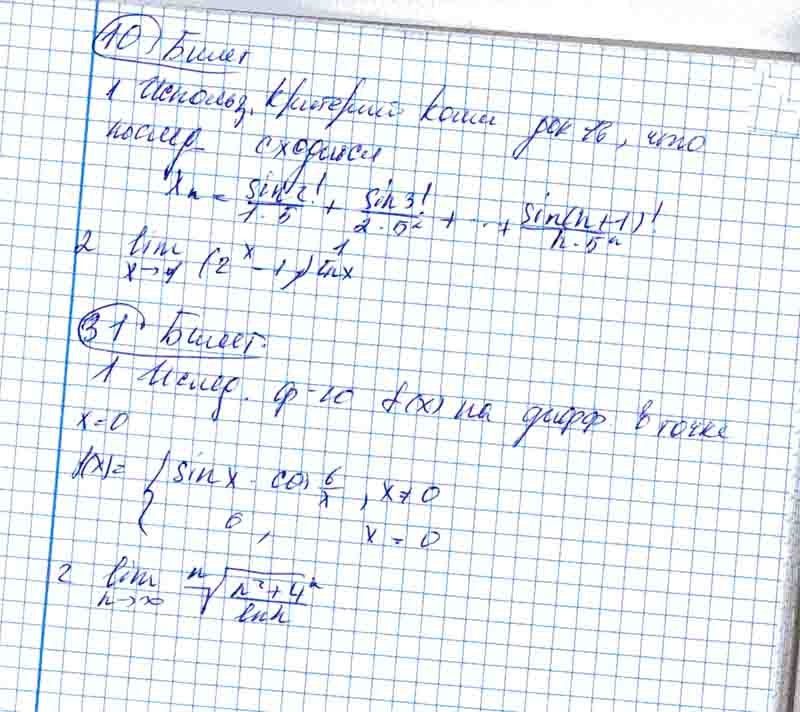 10) Билет
1 Использ. Критерий Коши док-ть, что
послед. сходится
Xn = sin2!/1·5 + sin3!/2·5² + ... + sin(n+1)!/n·5ⁿ
2 lim x→1 (2ˣ-1)^(1/lnx)
31. Билет.
1 Исслед. ф-ю f(x) на дифф. в точке
x=0
f(x)= { sinx · cos 6/x, x≠0
0, x=0
2 lim n→∞ ⁿ√((n²+4ⁿ)/lnn)